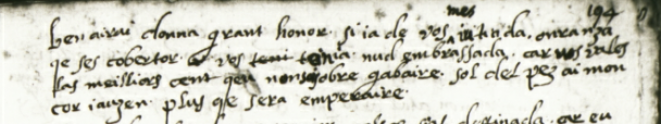 ben airai donna grant honor. si ia de vos mes iutiada. onranza 194
qe ses cobertor. vos tenia. nud embrassada. car vos vales
las meilliors cent qeu non sobre gabaire. sol del pez ai mon
cor iauzen. plus qe sera emperaire.
car eu